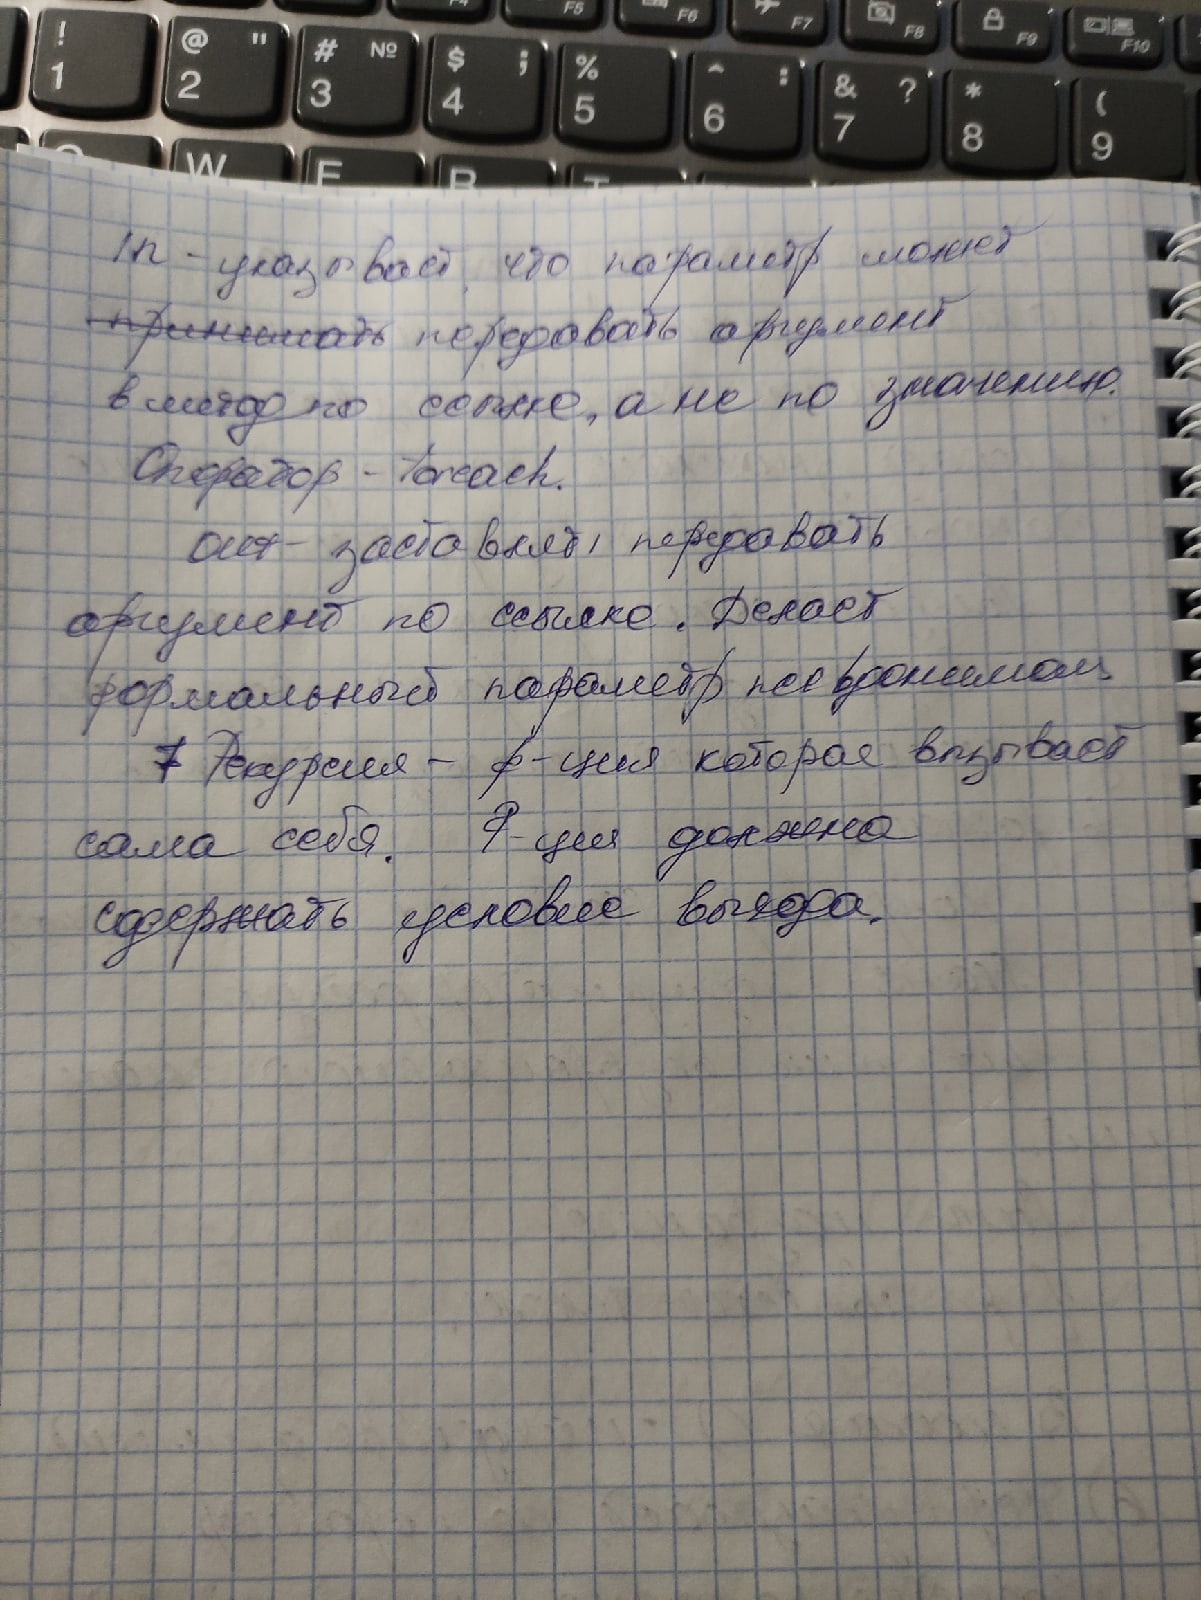 ! 1 @ " 2 # № 3 $ ; 4 % 5 ^ : 6 & ? 7 * 8 ( 9
F5 F6 F7 F8 F9 F10
W E R T
In - указывает, что параметр может
принимать передавать аргумент
в метод по ссылке, а не по значению.
Оператор - foreach.
out - заставлять передавать
аргумент по ссылке. Делает
формальный параметр псевдонимом
Рекурсия - ф-ция которая вызывает
сама себя. Ф-ция должна
содержать условие выхода.